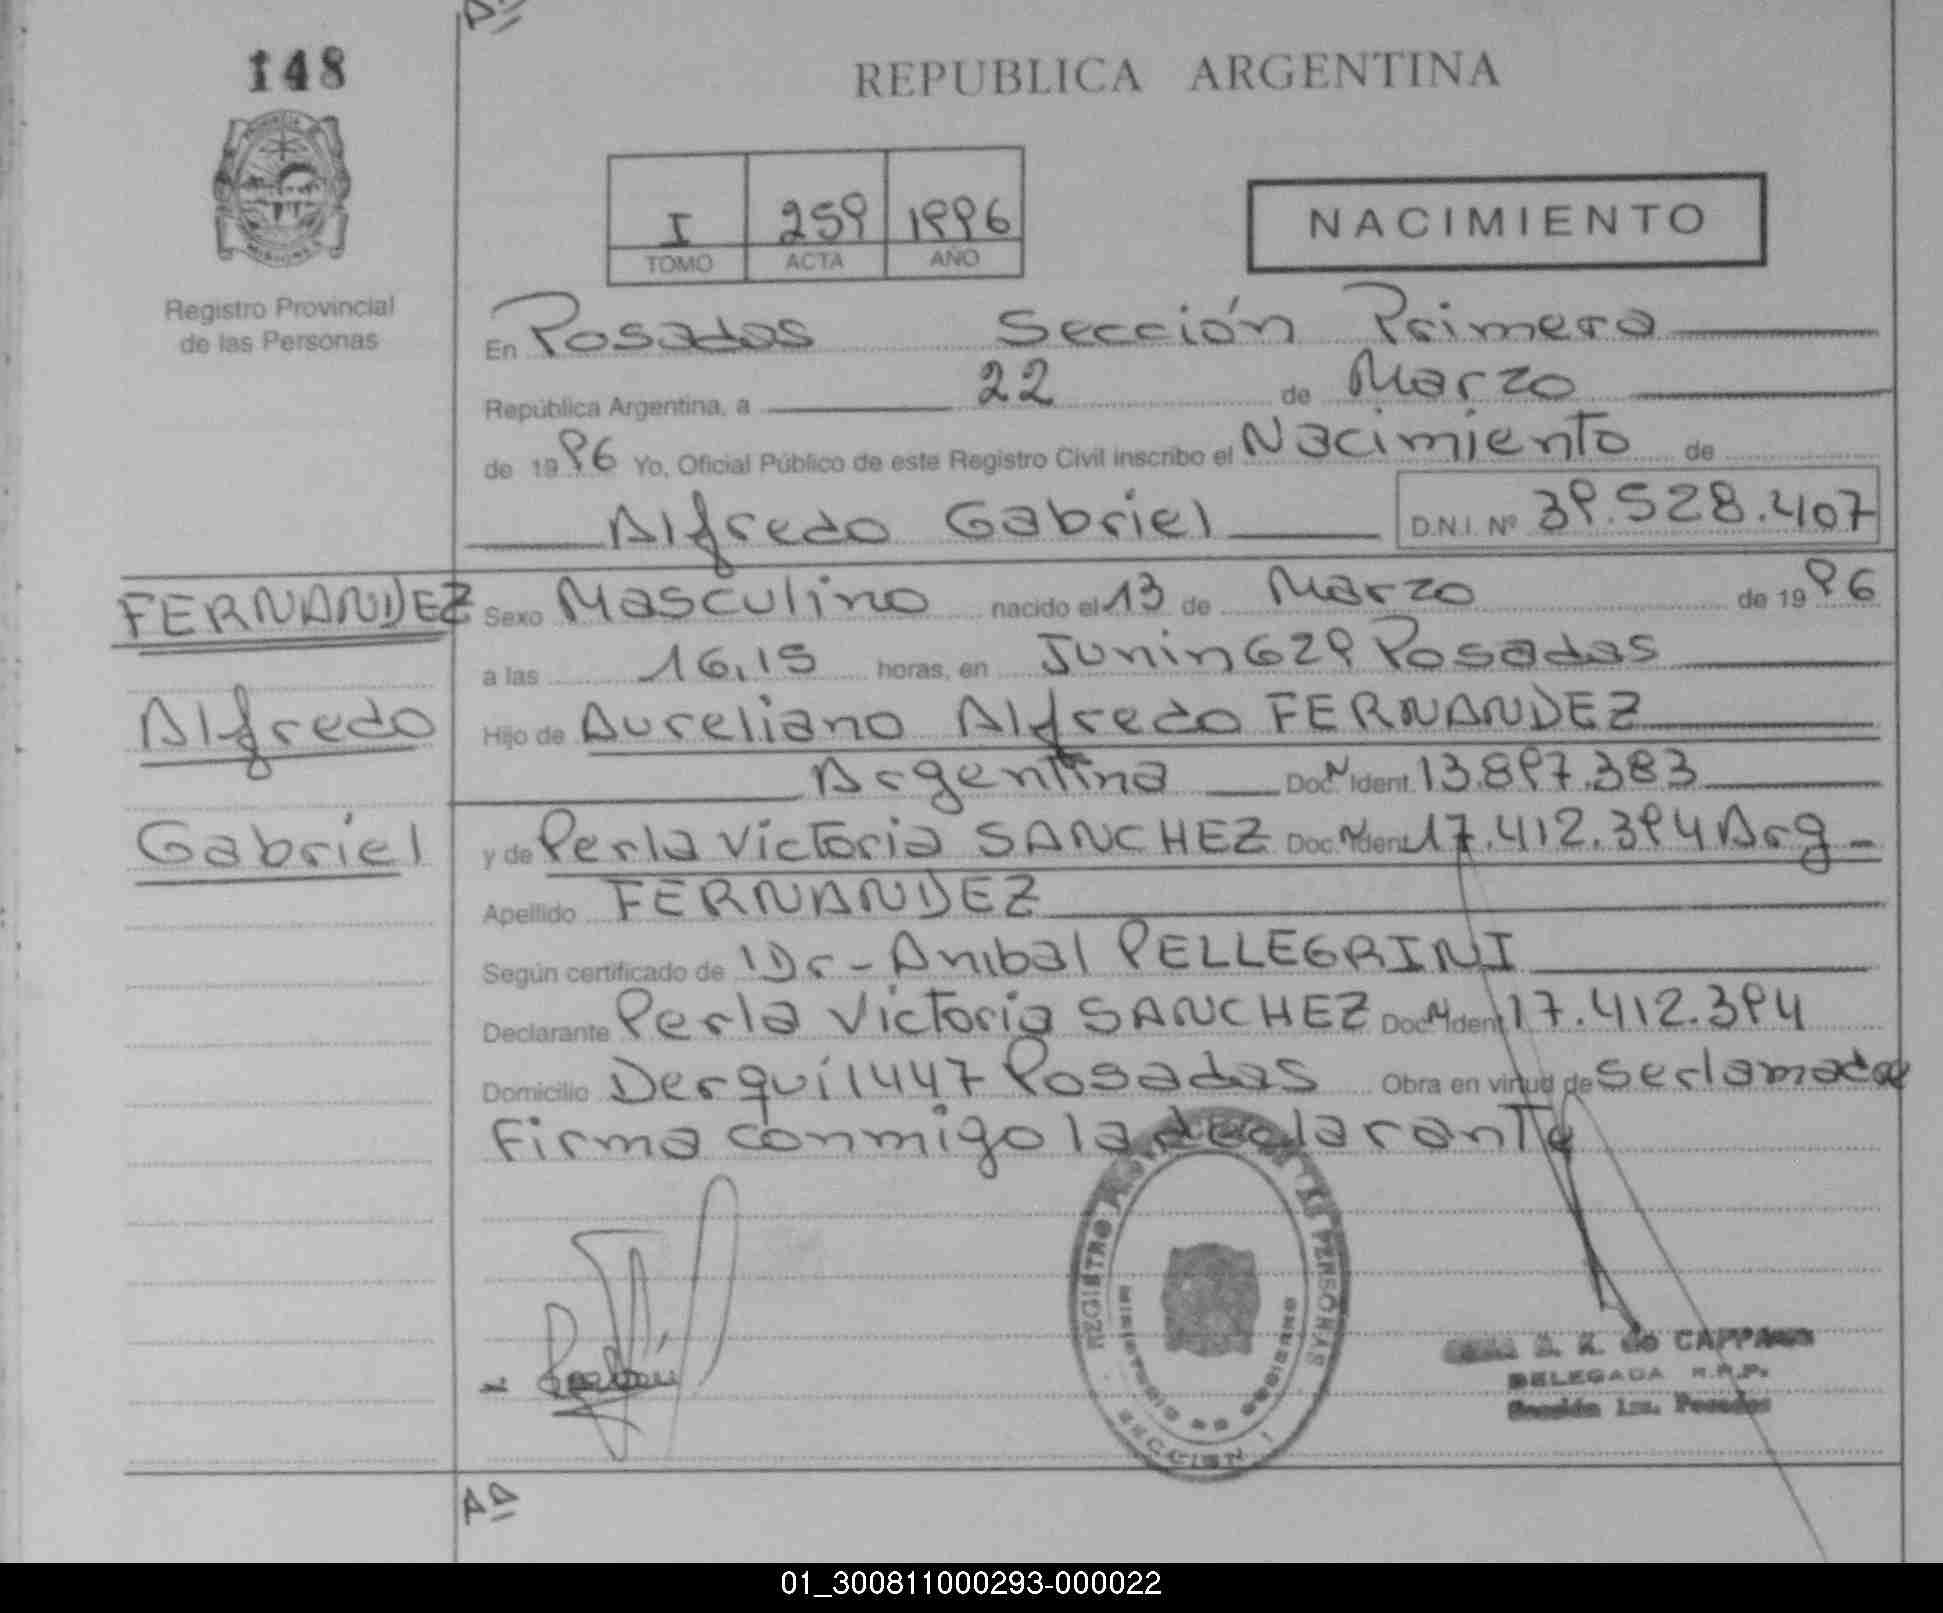 Aº
148
REPUBLICA ARGENTINA
PROVINCIA
MISIONES
I 259 1996
TOMO ACTA AÑO
NACIMIENTO
Registro Provincial
de las Personas
En Posadas Sección Primera
República Argentina, a 22 de Marzo
de 1996 Yo, Oficial Público de este Registro Civil inscribo el Nacimiento de
Alfredo Gabriel D.N.I. Nº 39.528.407
FERNANDEZ Sexo Masculino nacido el 13 de Marzo de 1996
a las 16,15 horas, en Junin 629 Posadas
Alfredo Hijo de Aureliano Alfredo FERNANDEZ
Argentina Doc. N Ident. 13.897.383
Gabriel y de Perla Victoria SANCHEZ Doc. N Ident. 17.412.394 Arg
Apellido FERNANDEZ
Según certificado de Dr - Anibal PELLEGRINI
Declarante Perla Victoria SANCHEZ Doc. N Ident. 17.412.394
Domicilio Derqui 1447 Posadas Obra en virtud de ser la madre
Firma conmigo la declarante
REGISTRO PROVINCIAL DE LAS PERSONAS
MINISTERIO DE GOBIERNO
SECCION 1
de CAPPANO
DELEGADA R.P.P.
Sección 1ra. Posadas
Aº
01_300811000293-000022